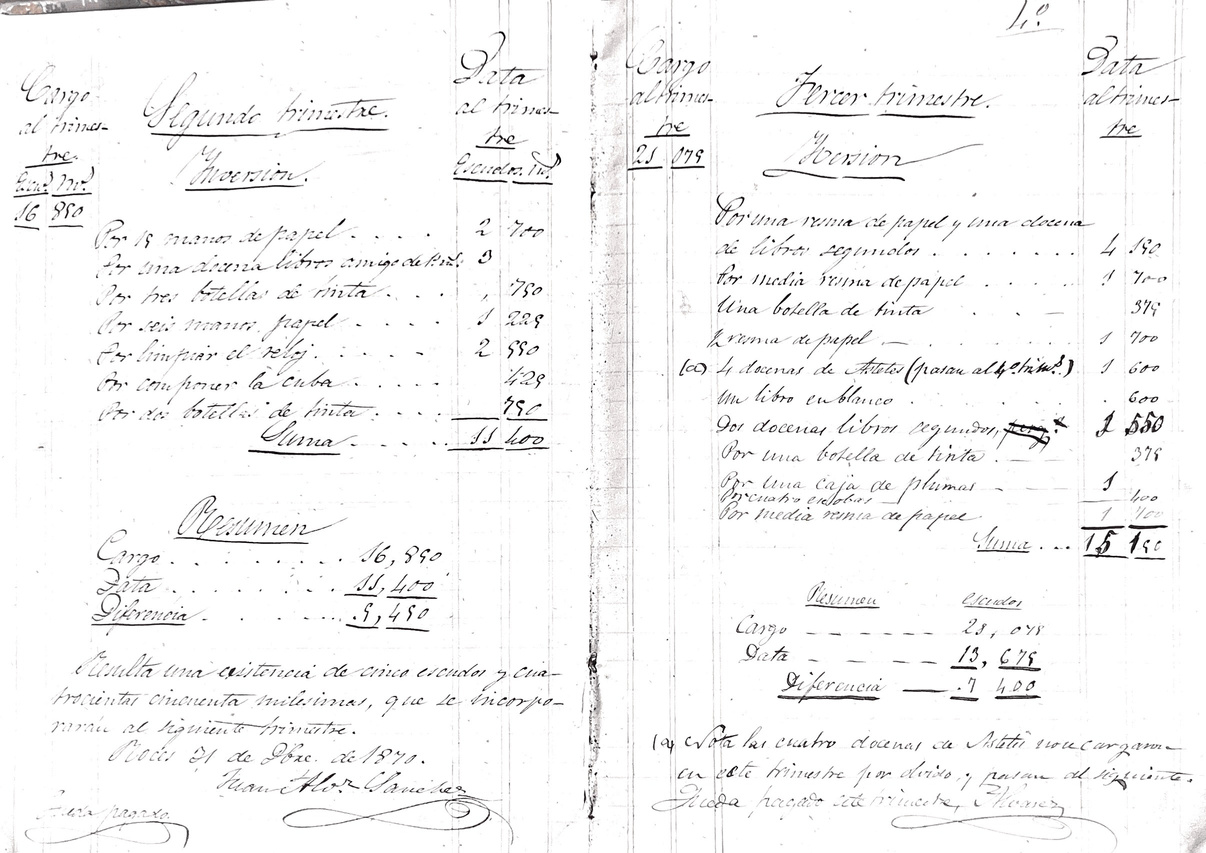 Cargo
al trimes-
tre.
Escud. Ms.
16 850
Segundo trimestre.
Inversion.
Data
al trimes-
tre
Escudos. Ms.
Por 18 manos de papel . . . . 2 700
Por una docena libros amigo de 3
Por tres botellas de tinta . . . . , 750
Por seis manos papel . . . . 1 225
Por limpiar el reloj. . . . . 2 550
Por componer la cuba . . . . 425
Por dos botellas de tinta . . . . 750
Suma . . . . 11 400
Resumen
Cargo . . . . . . . 16, 850
Data . . . . . . . 11, 400
Diferencia . . . . . . 5, 450
Resulta una existencia de cinco escudos y cua-
trocientas cincuenta milesimas, que se incorpo-
rarán al siguiente trimestre.
Roces 31 de Dbre. de 1870.
Juan Alvz Sanchez
Queda pagado.
4.º
Cargo
al trimes-
tre
21 075
Tercer trimestre.
Iversion
Data
al trimes-
tre
Por una resma de papel y una docena
de libros segundos . . . . . . . 4 150
Por media resma de papel . . . . . 1 700
Una botella de tinta . . . 375
½ resma de papel — . . . 1 700
(a) 4 docenas de Astetes (pasan al 4º trim.) 1 600
Un libro en blanco . . . . . . . 600
Dos docenas libros segundos, 1 550
Por una botella de tinta . — — 375
Por una caja de plumas — — 1
Por cuatro escobas 400
Por media resma de papel 1 700
Suma . . . 15 150
Resumen escudos
Cargo — — — — — 21, 075
Data — — — — — 13, 675
Diferencia — .7 400
(a) Nota las cuatro docenas de Astetes no se cargaron
en este trimestre por olvido, y pasan al siguiente.
Queda pagado este trimestre, Alvarez